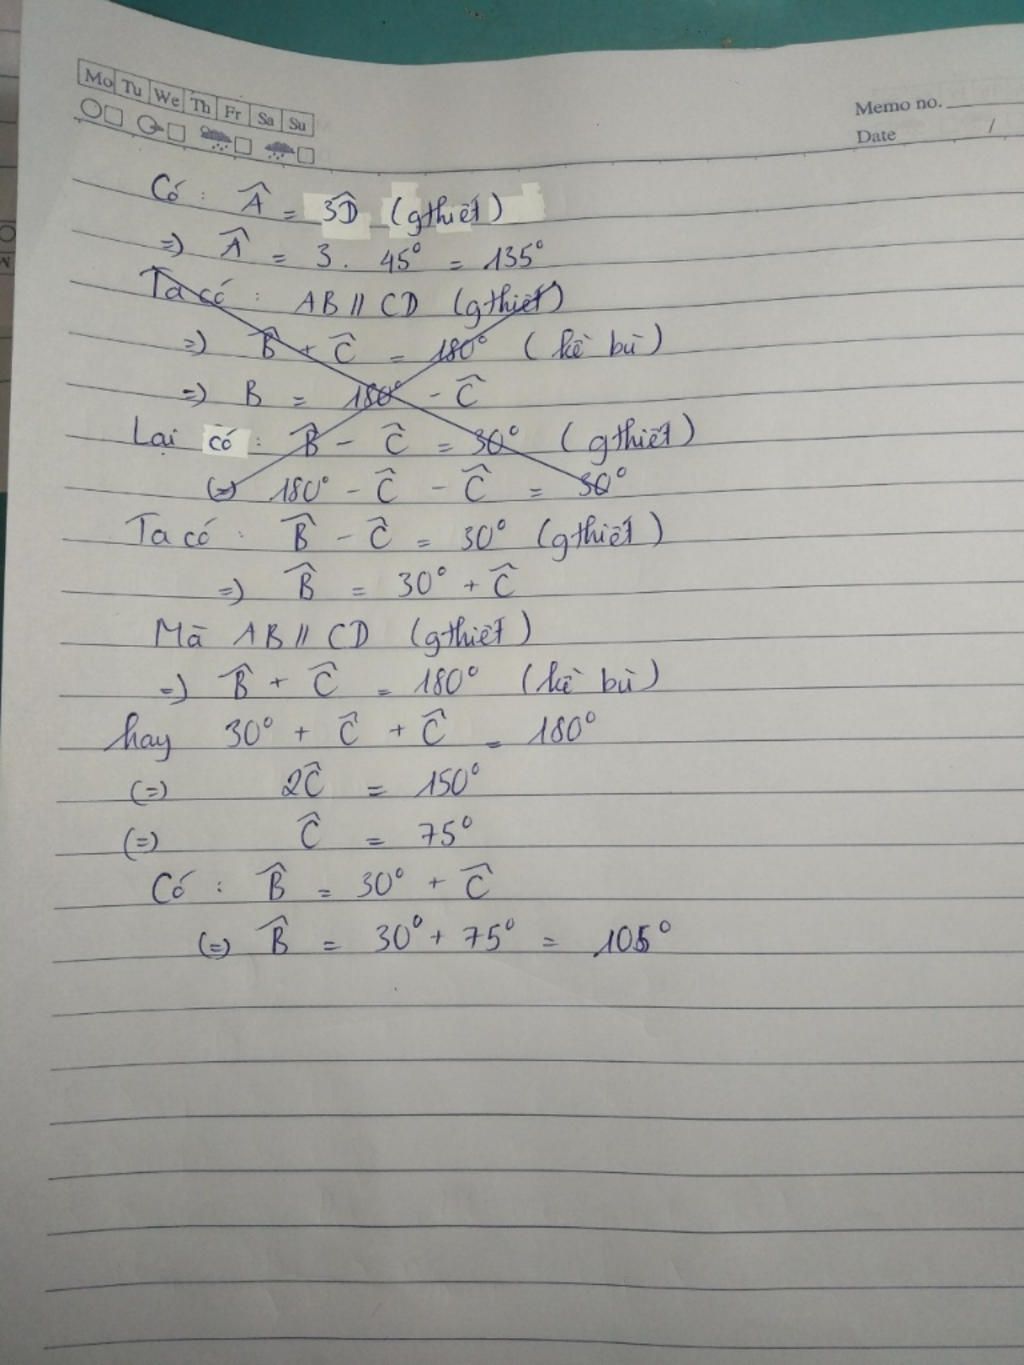 Mo Tu We Th Fr Sa Su
Memo no.
Date /
Có : Â = 3D̂ (gthiết)
=) Â = 3 . 45° = 135°
Ta có : AB // CD (gthiết)
=) B̂ + Ĉ = 180° ( kề bù )
=) B = 180° - Ĉ
Lại có : B̂ - Ĉ = 30° ( gthiết )
(=) 180° - Ĉ - Ĉ = 30°
Ta có : B̂ - Ĉ = 30° (gthiết )
=) B̂ = 30° + Ĉ
Mà AB // CD (gthiết )
=) B̂ + Ĉ = 180° (kề bù )
hay 30° + Ĉ + Ĉ = 180°
(=) 2Ĉ = 150°
(=) Ĉ = 75°
Có : B̂ = 30° + Ĉ
(=) B̂ = 30° + 75° = 105°